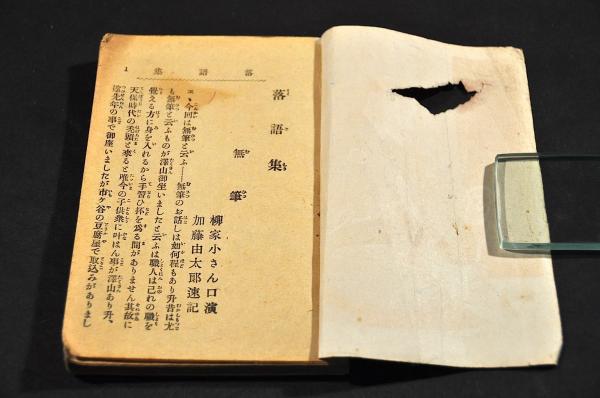 落語集
落語集
無筆
柳家小さん口演
加藤由太郎速記
エヽ今回は無筆と云ふ――無筆のお話しは如何程もあり升昔は尤
も無筆と云ふものが澤山御坐いましたと云ふは職人は己れの職を
覺える方に身を入れるから手習ひ抔を爲る間がありません其故に
天保時代の禿頭と來ると唯今の子供衆に叶はん事が澤山あり升、
先年の事で御座いましたが市ヶ谷の豆腐屋で取込みがありまし
1